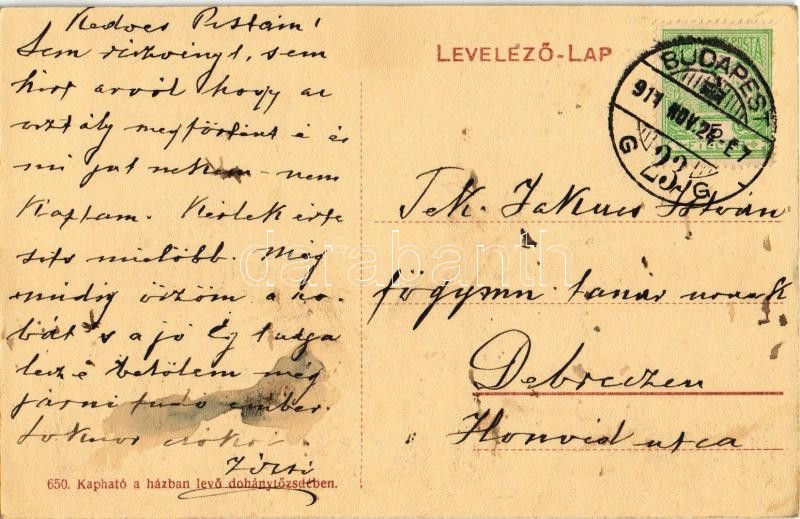 Kedves Pistám!
Sem részvényt, sem
hírt arról hogy az
osztály megtörtént é és
mi jut nekem - nem
kaptam. Kérlek érte
síts mielőbb. Még
mindig őrzöm a szo-
bát s a jó Ég tudja
lesz é belőlem még
járni tudó ember.
csókol
Józsi
650. Kapható a házban levő dohánytőzsdében.
LEVELEZŐ-LAP
BUDAPEST
NOV. 24
23
G G
Tek. Jakucs István
főgymn. tanár urnak
Debreczen
Honvéd utca
darabanth